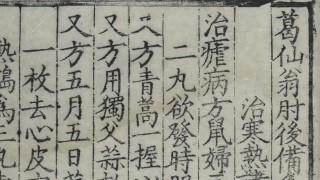 葛仙翁肘後備
治寒熱
治瘧病方鼠婦
二丸欲發時服
又方青蒿一握
又方用獨父蒜
又方五月五日蒜
一枚去心皮
熱搗為三丸